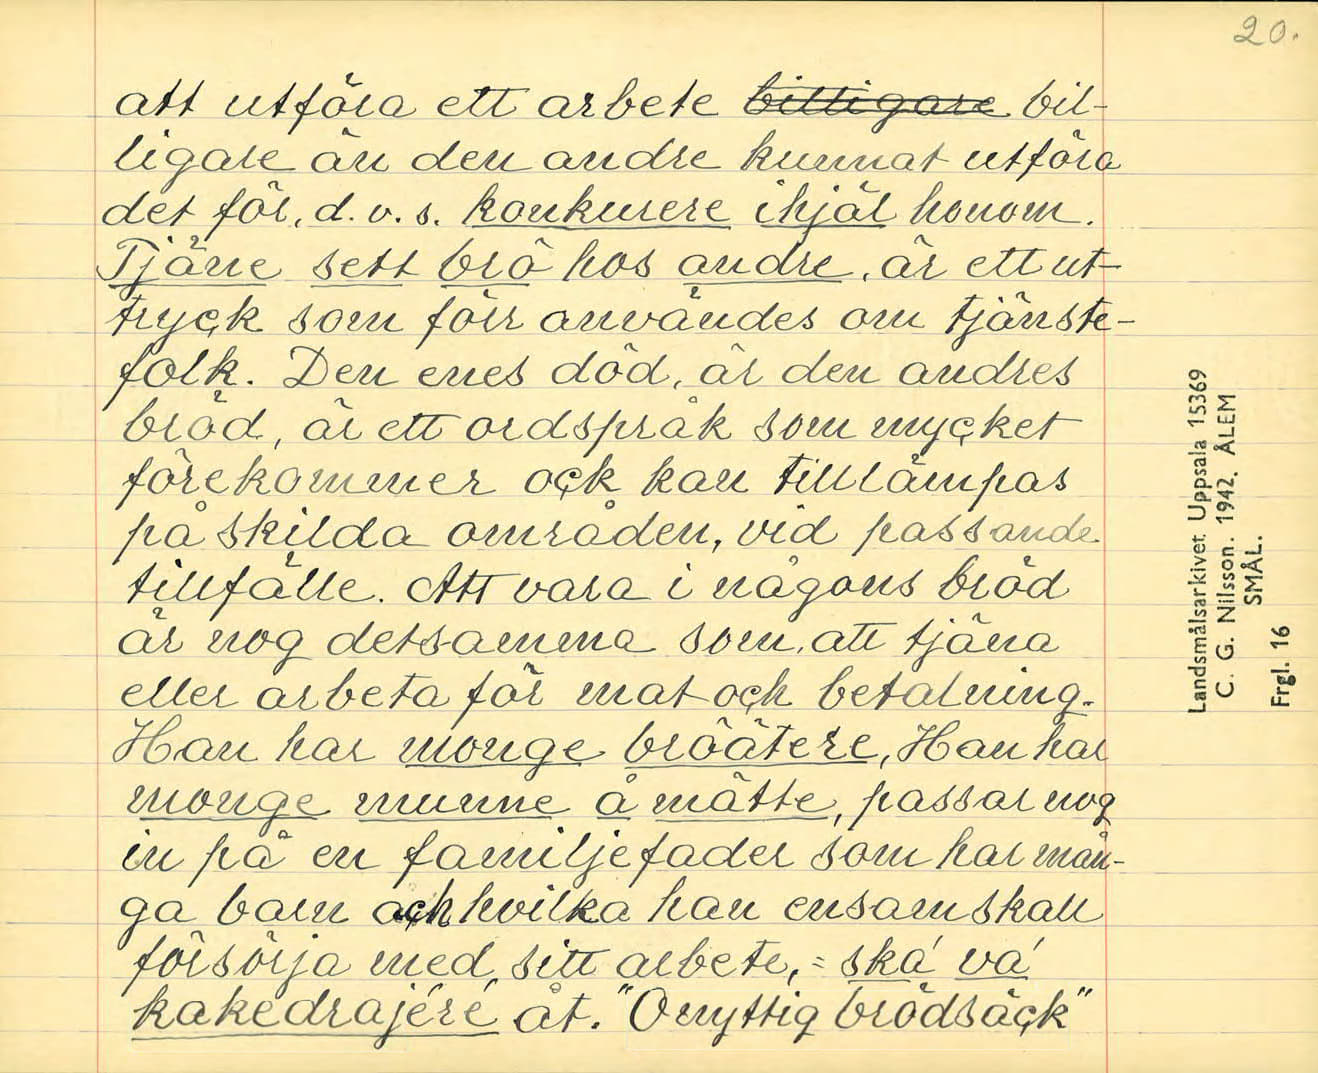 20.
att utföra ett arbete billigare bil-
ligare än den andre kunnat utföra
det för, d. v. s. konkurere ihjäl honom.
Tjäne sett brö hos andre, är ett ut-
tryck som förr användes om tjänste-
folk. Den enes död, är den andres
bröd, är ett ordspråk som mycket
förekommer ock kan tilllämpas
på skilda områden, vid passande
tillfälle. Att vara i någons bröd
är nog detsamma som, att tjäna
eller arbeta för mat och betalning.
Han har monge bröätere, Han har
monge munne å mätte, passar nog
in på en familjefader som har mån-
ga barn och hvilka han ensam skall
försörja med sitt arbete, = ská vá
kakedrajéré åt. "Onyttig brödsäck"
Landsmålsarkivet Uppsala 15369
C. G. Nilsson. 1942. ÅLEM
SMÅL.
Frgl. 16